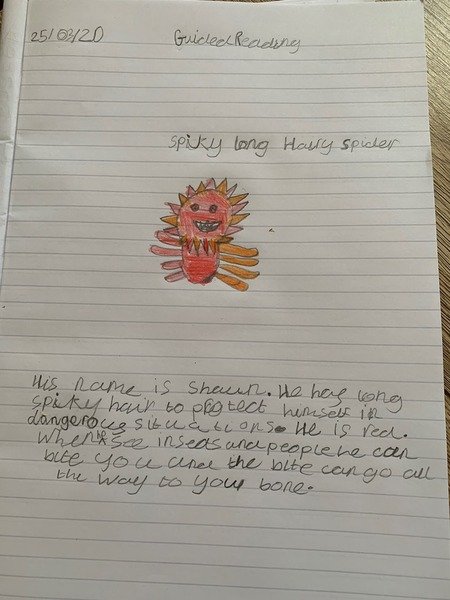 25/03/20 Guided Reading
Spiky long Hairy spider
His name is Shawn. He has long
spiky hair to protect himself in
dangerous situations. He is red.
When see insects and people he can
bite you and the bite can go all
the way to your bone.